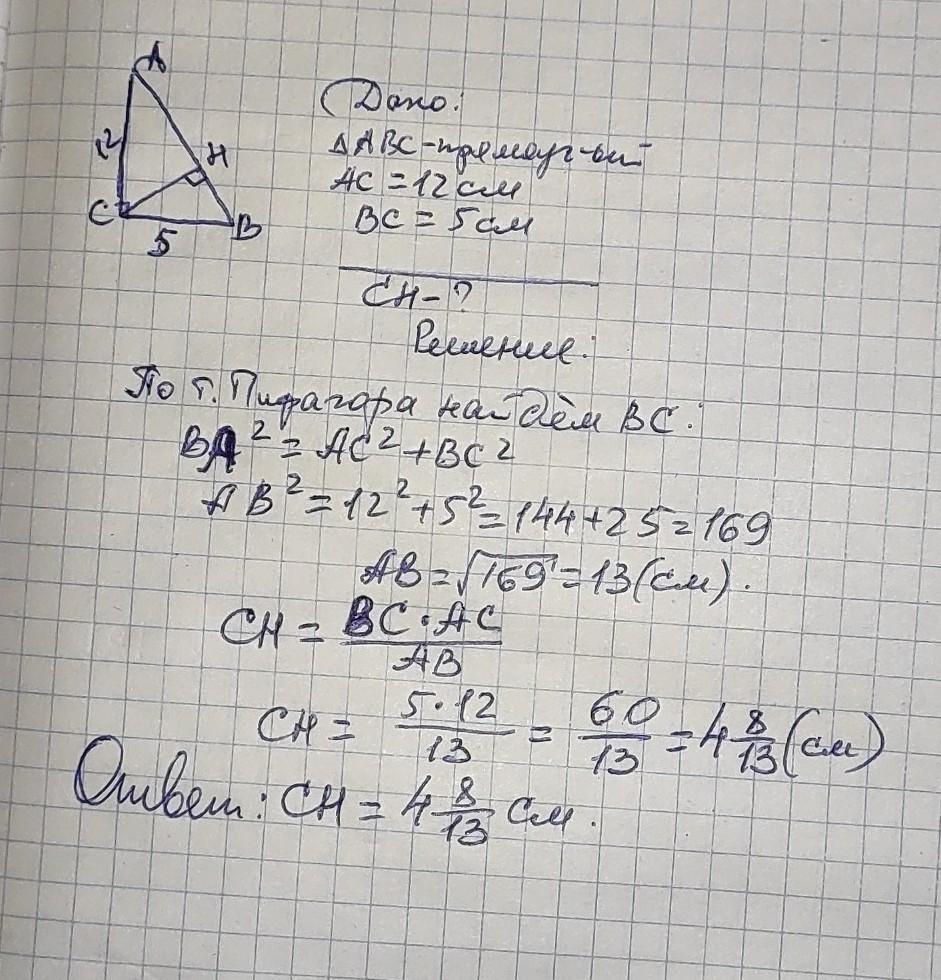 A
12
H
C
B
5
Дано:
ΔABC-прямоуг-ый
AC = 12 см
BC = 5 см
CH - ?
Решение:
По т. Пифагора найдём BC:
BA² = AC² + BC²
AB² = 12² + 5² = 144 + 25 = 169
AB = √169 = 13 (см).
CH = BC · AC / AB
CH = 5 · 12 / 13 = 60/13 = 4 8/13 (см)
Ответ: CH = 4 8/13 см.